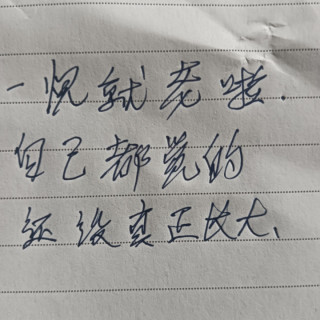 一晃就老啦.
自己都觉的
还没真正长大、